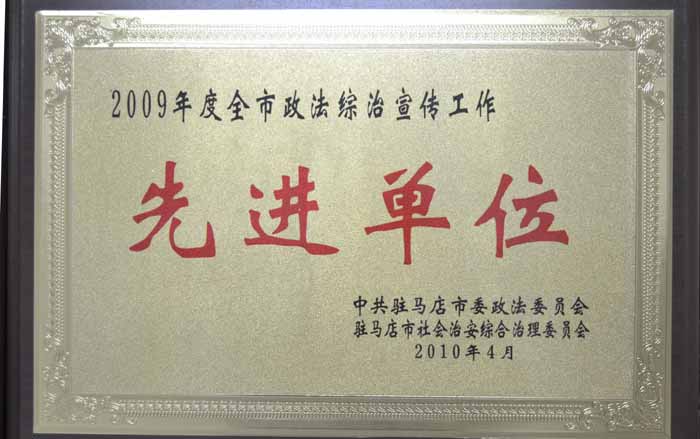 2009年度全市政法综治宣传工作
先进单位
中共驻马店市委政法委员会
驻马店市社会治安综合治理委员会
2010年4月